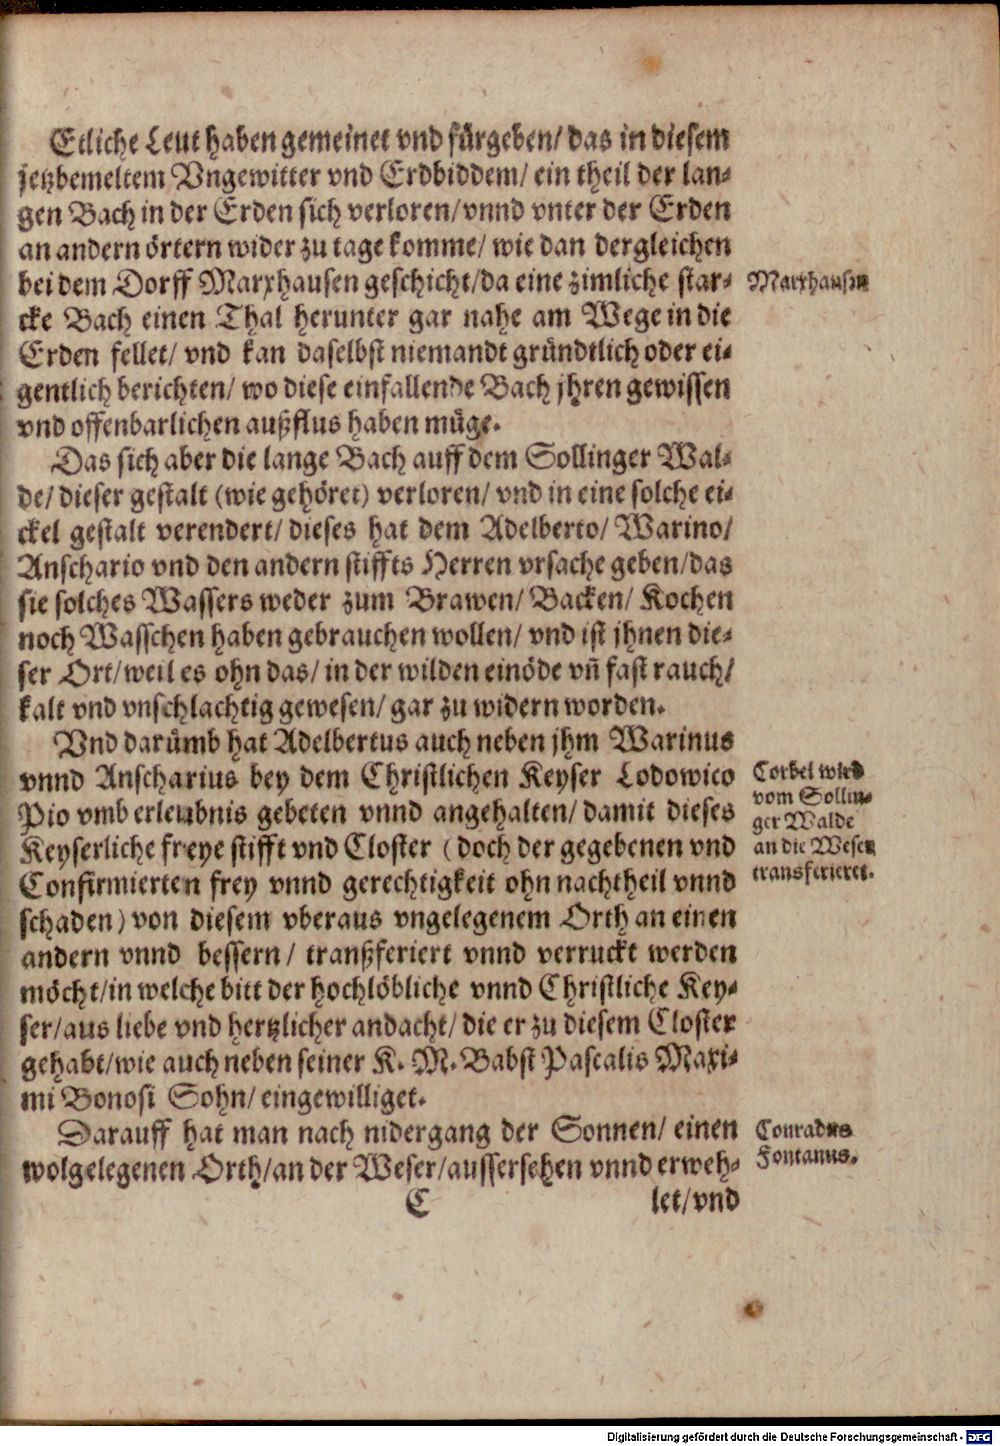 Etliche Leut haben gemeinet vnd fürgeben/ das in diesem
jetzbemeltem Vngewitter vnd Erdbiddem/ ein theil der lan-
gen Bach in der Erden sich verloren/ vnnd vnter der Erden
an andern örtern wider zu tage komme/ wie dan dergleichen
bei dem Dorff Marxhausen geschicht/ da eine zimliche star-
Marxhausen
cke Bach einen Thal herunter gar nahe am Wege in die
Erden fellet/ vnd kan daselbst niemandt gründtlich oder ei-
gentlich berichten/ wo diese einfallende Bach jhren gewissen
vnd offenbarlichen außflus haben müge.
Das sich aber die lange Bach auff dem Sollinger Wal-
de/ dieser gestalt (wie gehöret) verloren/ vnd in eine solche ei-
ckel gestalt verendert/ dieses hat dem Adelberto/ Warino/
Anschario vnd den andern stiffts Herren vrsache geben/ das
sie solches Wassers weder zum Brawen/ Backen/ Kochen
noch Wasschen haben gebrauchen wollen/ vnd ist jhnen die-
ser Ort/ weil es ohn das/ in der wilden einöde vñ fast rauch/
kalt vnd vnschlachtig gewesen/ gar zu widern worden.
Vnd darümb hat Adelbertus auch neben jhm Warinus
vnnd Anscharius bey dem Christlichen Keyser Lodowico
Pio vmb erleubnis gebeten vnnd angehalten/ damit dieses
Keyserliche freye stifft vnd Closter (doch der gegebenen vnd
Confirmierten frey vnnd gerechtigkeit ohn nachtheil vnnd
schaden) von diesem vberaus vngelegenem Orth an einen
andern vnnd bessern/ tranßferiert vnnd verruckt werden
möcht/ in welche bitt der hochlöbliche vnnd Christliche Key-
ser/ aus liebe vnd hertzlicher andacht/ die er zu diesem Closter
gehabt/ wie auch neben seiner K. M. Babst Pascalis Maxi-
mi Bonosi Sohn/ eingewilliget.
Corbei wird
vom Sollin-
ger Walde
an die Weser
transferieret.
Darauff hat man nach nidergang der Sonnen/ einen
wolgelegenen Orth/ an der Weser/ aussersehen vnnd erweh-
Conradus
Fontanus.
C
let/ vnd
Digitalisierung gefördert durch die Deutsche Forschungsgemeinschaft - DFG